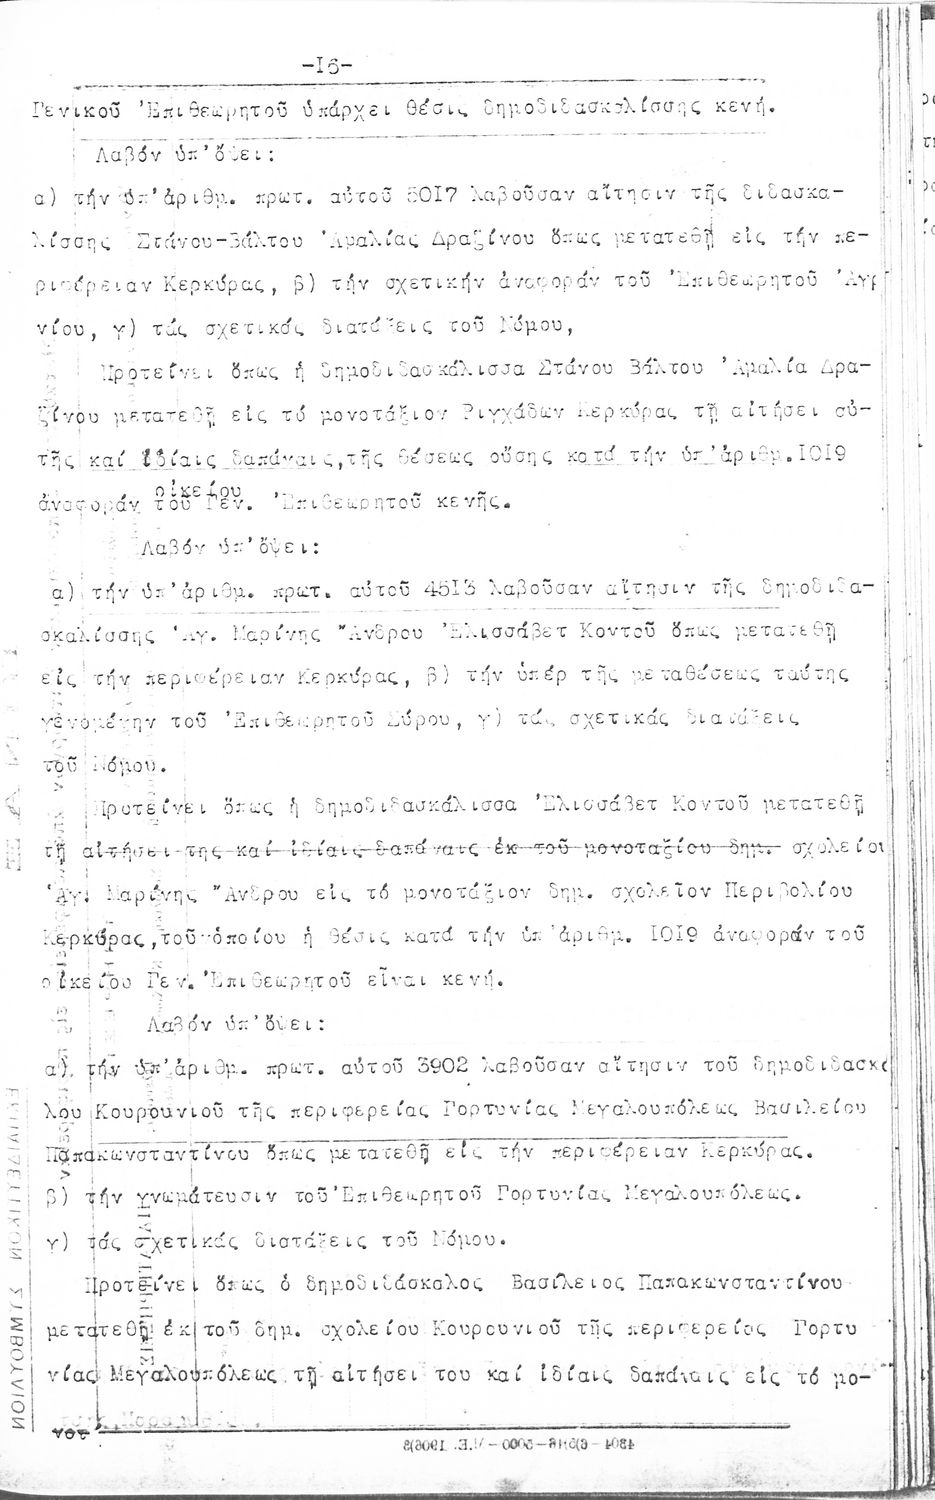 -I6-
Γενικοῦ Ἐπιθεωρητοῦ ὑπάρχει θέσις δημοδιδασκαλίσσης κενή.
Λαβόν ὑπ'ὄψει:
α) τήν ὑπ'ἀριθμ. πρωτ. αὐτοῦ 5OI7 λαβοῦσαν αἴτησιν τῆς διδασκα-
λίσσης Στάνου-Βάλτου Ἀμαλίας Δραζίνου ὅπως μετατεθῇ εἰς τήν πε-
ριφέρειαν Κερκύρας, β) τήν σχετικήν ἀναφοράν τοῦ Ἐπιθεωρητοῦ Ἀγρ
νίου, γ) τάς σχετικάς διατάξεις τοῦ Νόμου,
Προτείνει ὅπως ἡ δημοδιδασκάλισσα Στάνου Βάλτου Ἀμαλία Δρα-
ζίνου μετατεθῇ εἰς τό μονοτάξιον Ριγχάδων Κερκύρας τῇ αἰτήσει αὐ-
τῆς καί ἰδίαις δαπάναις,τῆς θέσεως οὔσης κατά τήν ὑπ'ἀριθμ.IOI9
οἰκείου
ἀναφοράν τοῦ Γεν. Ἐπιθεωρητοῦ κενῆς.
Λαβόν ὑπ'ὄψει:
α) τήν ὑπ'ἀριθμ. πρωτ. αὐτοῦ 45I3 λαβοῦσαν αἴτησιν τῆς δημοδιδα-
σκαλίσσης Ἁγ. Μαρίνης Ἄνδρου Ἐλισσάβετ Κοντοῦ ὅπως μετατεθῇ
εἰς τήν περιφέρειαν Κερκύρας, β) τήν ὑπέρ τῆς μεταθέσεως ταύτης
γενομένην τοῦ Ἐπιθεωρητοῦ Σύρου, γ) τάς σχετικάς διατάξεις
τοῦ Νόμου.
Προτείνει ὅπως ἡ δημοδιδασκάλισσα Ἐλισσάβετ Κοντοῦ μετατεθῇ
τῇ αἰτήσει της καί ἰδίαις δαπάναις ἐκ τοῦ μονοταξίου δημ. σχολείου
Ἁγ. Μαρίνης Ἄνδρου εἰς τό μονοτάξιον δημ. σχολεῖον Περιβολίου
Κερκύρας,τοῦ ὁποίου ἡ θέσις κατά τήν ὑπ'ἀριθμ. IOI9 ἀναφοράν τοῦ
οἰκείου Γεν. Ἐπιθεωρητοῦ εἶναι κενή.
Λαβόν ὑπ'ὄψει:
α) τήν ὑπ'ἀριθμ. πρωτ. αὐτοῦ 3902 λαβοῦσαν αἴτησιν τοῦ δημοδιδασκά
λου Κουρουνιοῦ τῆς περιφερείας Γορτυνίας Μεγαλουπόλεως Βασιλείου
Παπακωνσταντίνου ὅπως μετατεθῇ εἰς τήν περιφέρειαν Κερκύρας.
β) τήν γνωμάτευσιν τοῦ Ἐπιθεωρητοῦ Γορτυνίας Μεγαλουπόλεως.
γ) τάς σχετικάς διατάξεις τοῦ Νόμου.
Προτείνει ὅπως ὁ δημοδιδάσκαλος Βασίλειος Παπακωνσταντίνου
μετατεθῇ ἐκ τοῦ δημ. σχολείου Κουρουνιοῦ τῆς περιφερείας Γορτυ
νίας Μεγαλουπόλεως τῇ αἰτήσει του καί ἰδίαις δαπάναις εἰς τό μο-